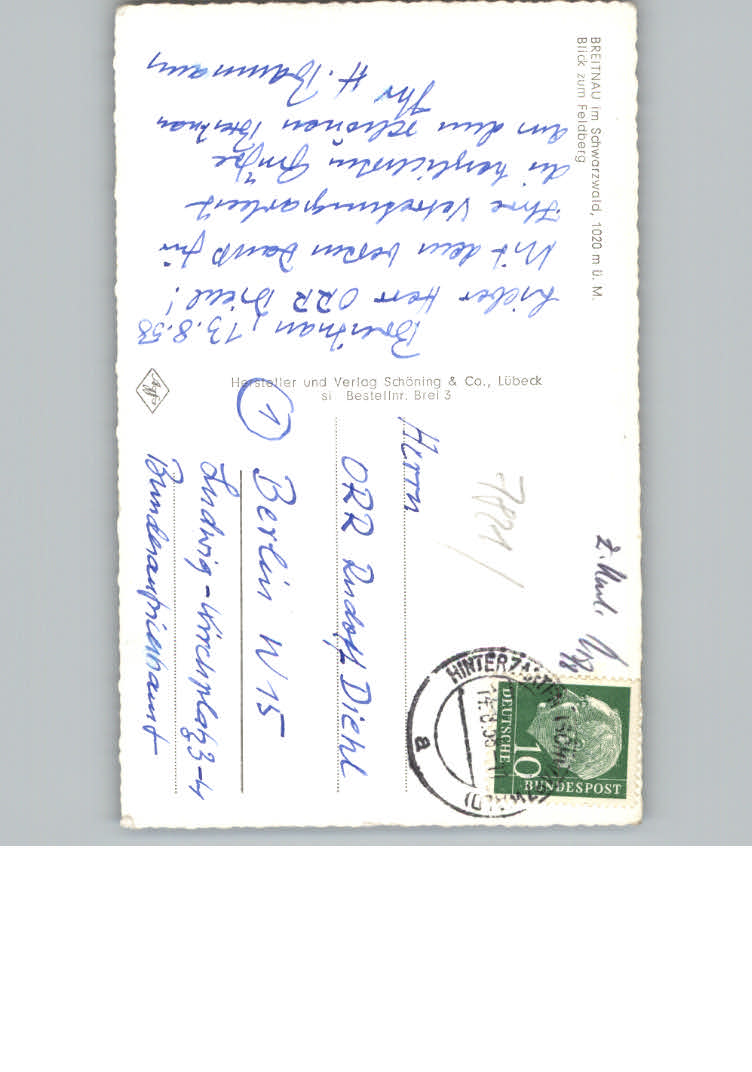 BREITNAU im Schwarzwald, 1020 m ü. M.
Blick zum Feldberg
Breitnau, 13.8.58
Lieber Herr ORR Diehl!
Mit dem besten Dank für
Ihre Vertretungsarbeit
die herzlichsten Grüße
aus dem schönen Breitnau
Ihr H. Baumann
Hersteller und Verlag Schöning & Co., Lübeck
si Bestellnr. Brei 3
Agfa
Herrn
ORR Rudolf Diehl
1
Berlin W 15
Ludwig-Kirchplatz 3-4
Bundesaufsichtsamt
HINTERZARTEN
a
DEUTSCHE
10
BUNDESPOST